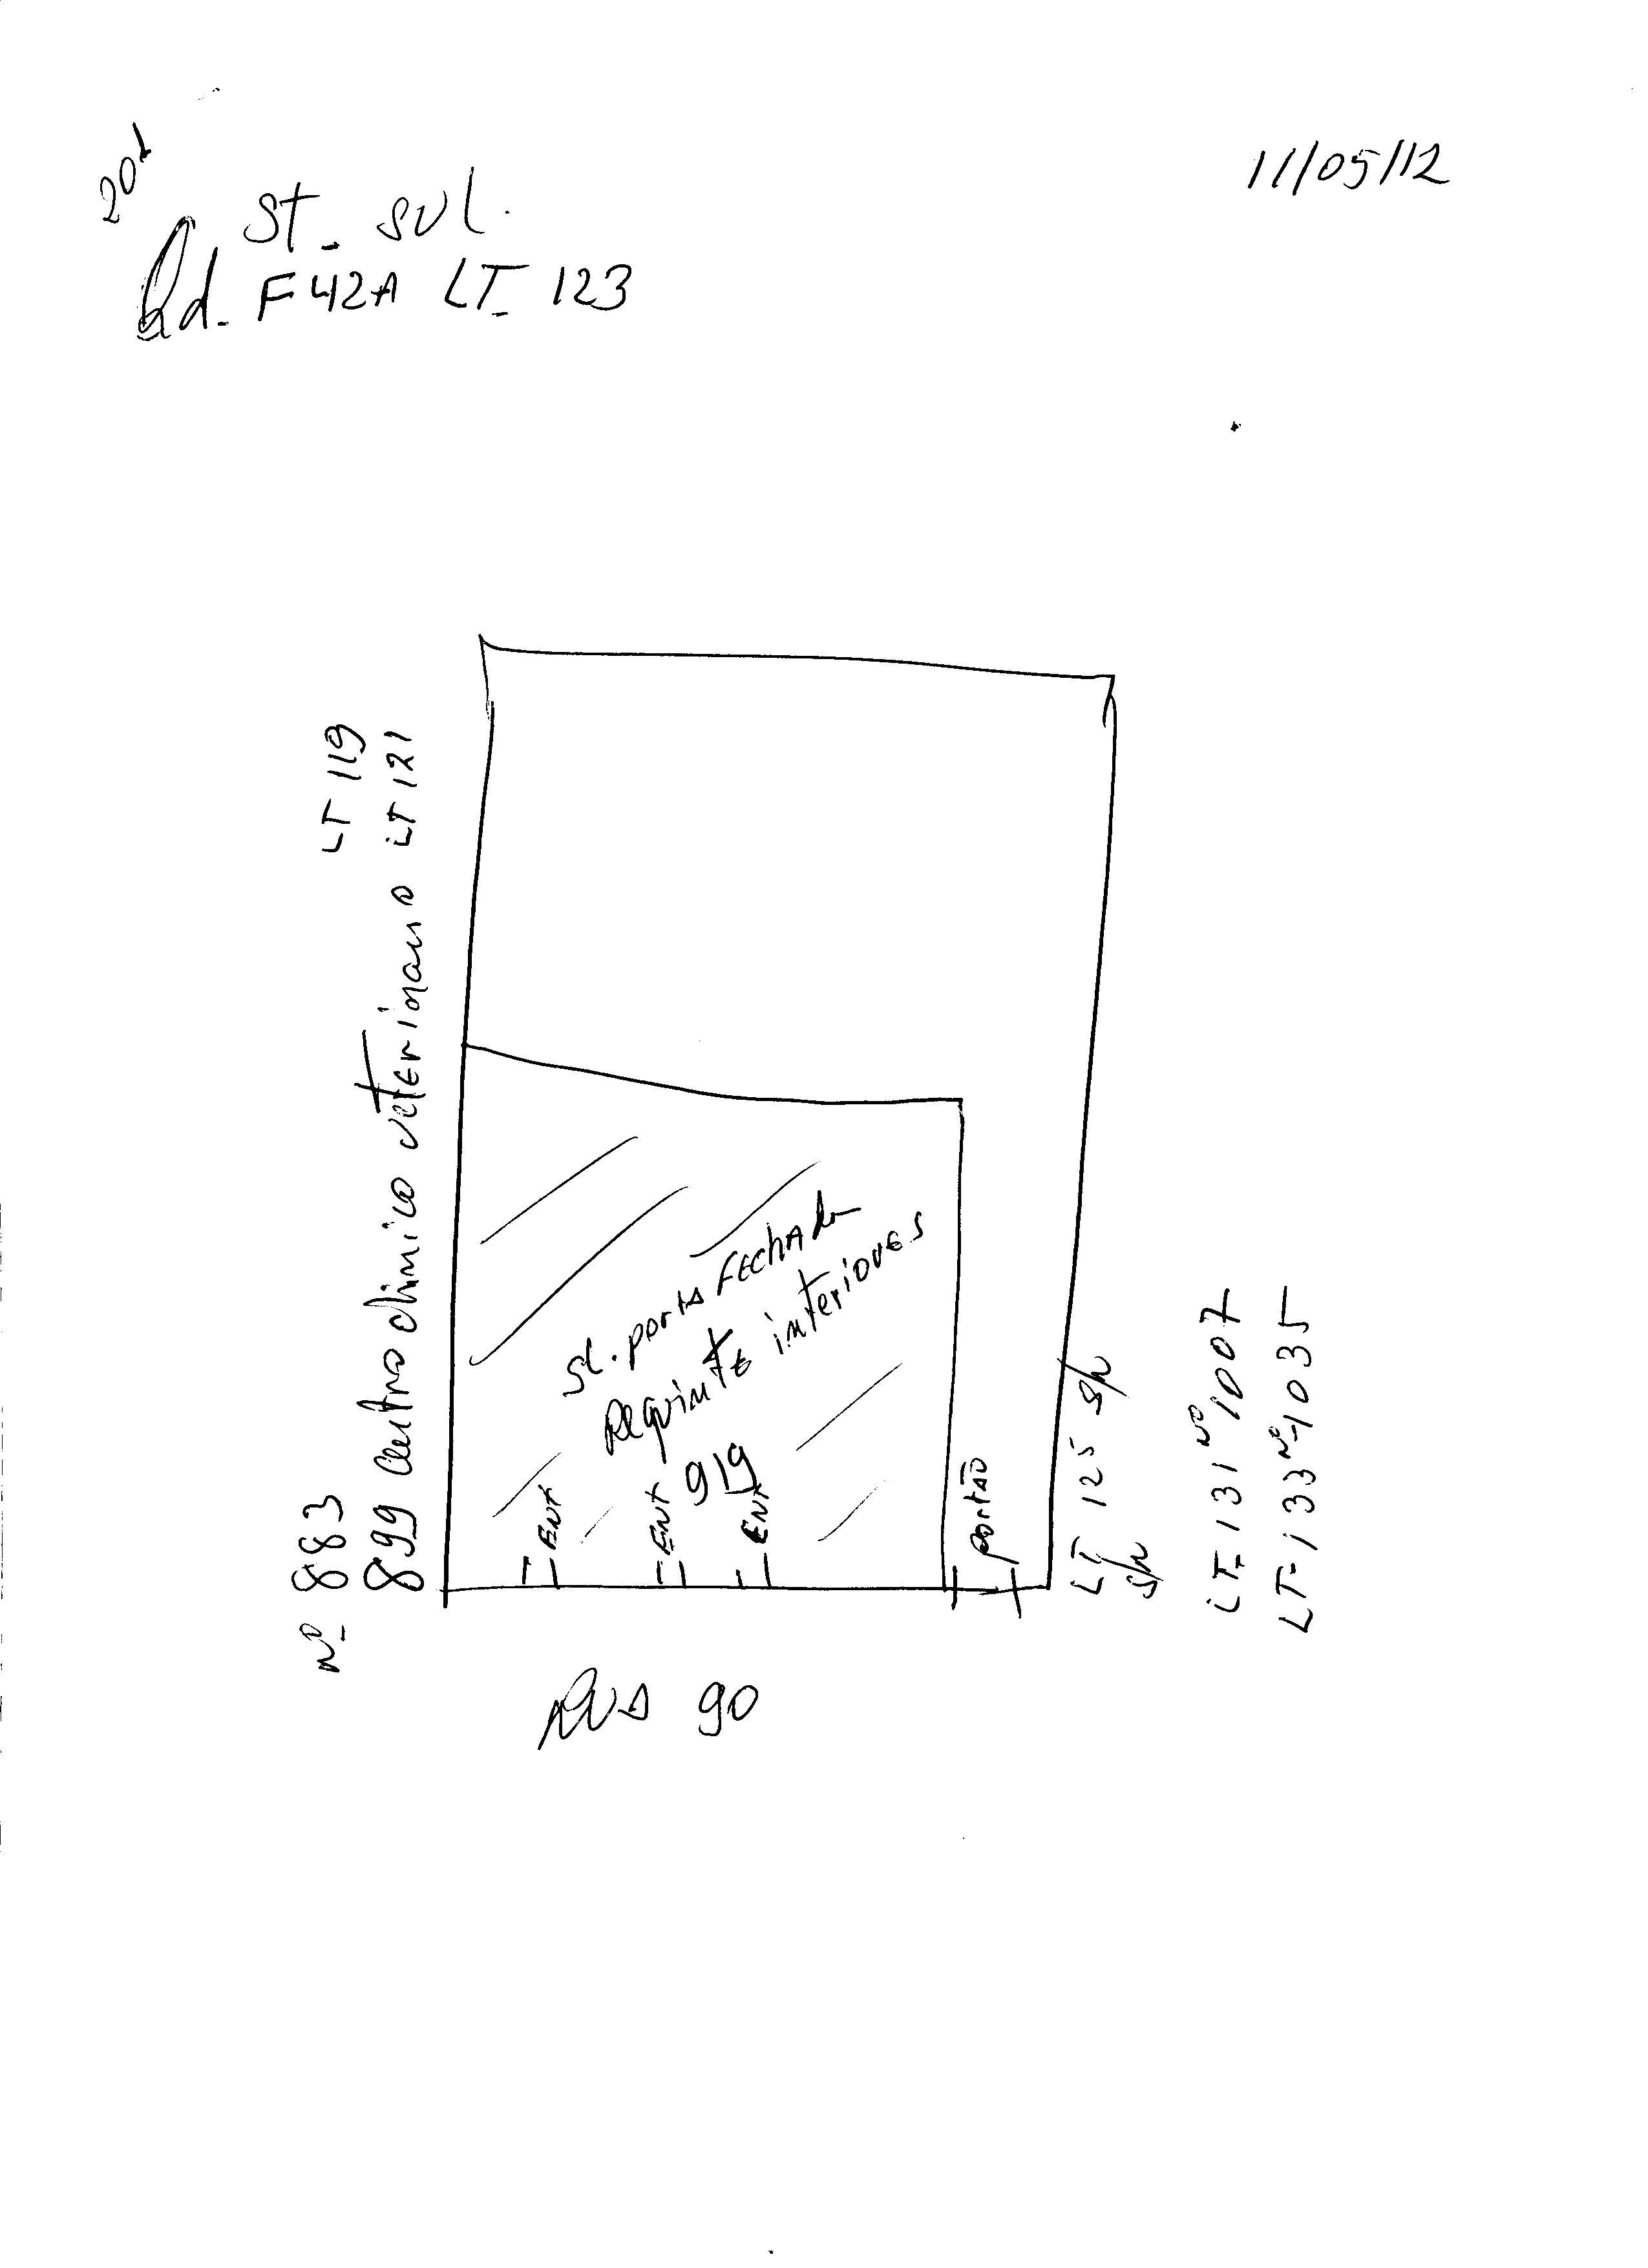 201
11/05/12
St. SUL.
Qd. F42A LT. 123
Nº 883 LT 119
899 Centro clinico veterinario LT 121
Sl. porta FEchada
Requinte interiores
919
ENt
ENt
ENt
portão
LT 125 S/N
S/N
LT. 131 Nº 1007
LT. 133 Nº 1035
RUA 90